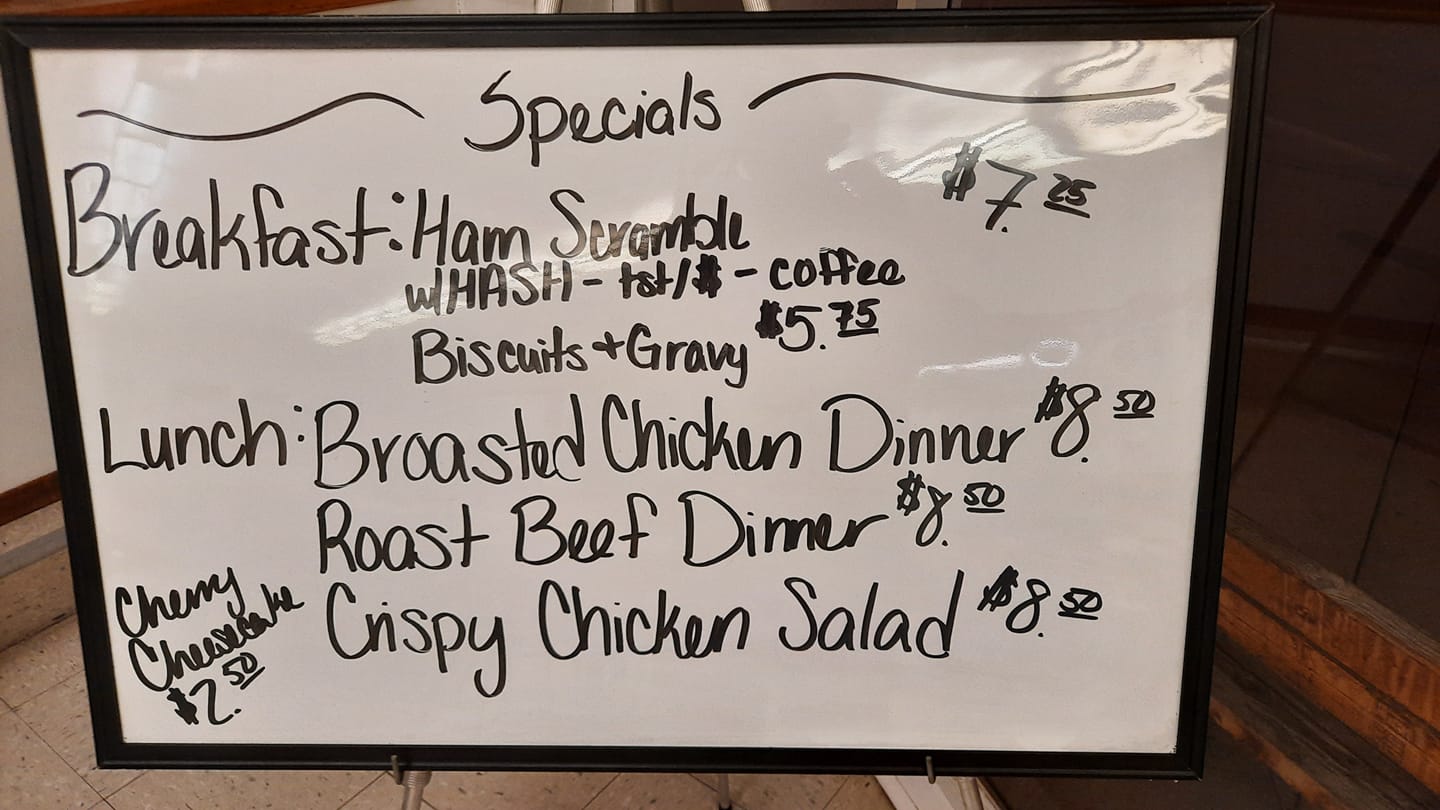 Specials
Breakfast: Ham Scramble $7.25
w/HASH - tst/ - coffee
Biscuits + Gravy $5.75
Lunch: Broasted Chicken Dinner $8.50
Roast Beef Dinner $8.50
Crispy Chicken Salad $8.50
Cherry
Cheesecake
$2.50